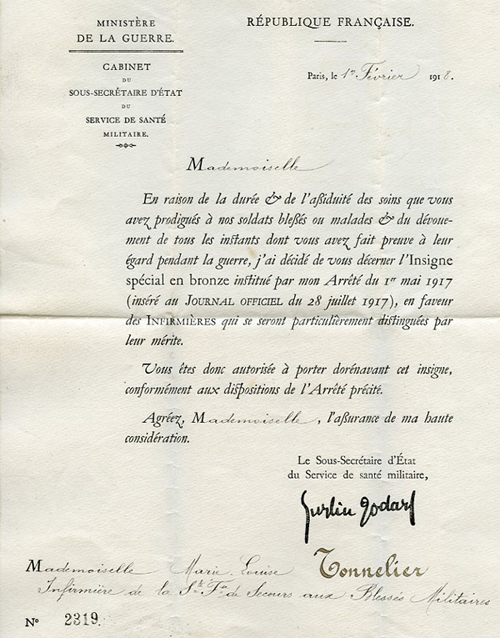 MINISTÈRE
DE LA GUERRE.
CABINET
DU
SOUS-SECRÉTAIRE D'ÉTAT
DU
SERVICE DE SANTÉ
MILITAIRE.
RÉPUBLIQUE FRANÇAISE.
Paris, le 1er Février 1918.
Mademoiselle
En raison de la durée & de l'assiduité des soins que vous
avez prodigués à nos soldats blessés ou malades & du dévoue-
ment de tous les instants dont vous avez fait preuve à leur
égard pendant la guerre, j'ai décidé de vous décerner l'Insigne
spécial en bronze institué par mon Arrêté du 1er mai 1917
(inséré au JOURNAL OFFICIEL du 28 juillet 1917), en faveur
des INFIRMIÈRES qui se seront particulièrement distinguées par
leur mérite.
Vous êtes donc autorisée à porter dorénavant cet insigne,
conformément aux dispositions de l'Arrêté précité.
Agréez, Mademoiselle, l'assurance de ma haute
considération.
Le Sous-Secrétaire d'État
du Service de santé militaire,
Justin Godart
Mademoiselle Marie-Louise Tonnelier
Infirmière de la Sté Fse de Secours aux Blessés Militaires
N° 2319.